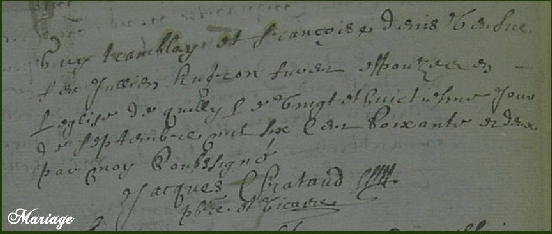 Guy tramblay et françoise denis Venfue
feu Jullien huscon furent espouzez en
l'eglise de quilly le vingt et huict iesme Jour
de septembre mil six cent soixante et deux
par moy soubssigné
Jacques Chataud
pbre et vicaire
Mariage